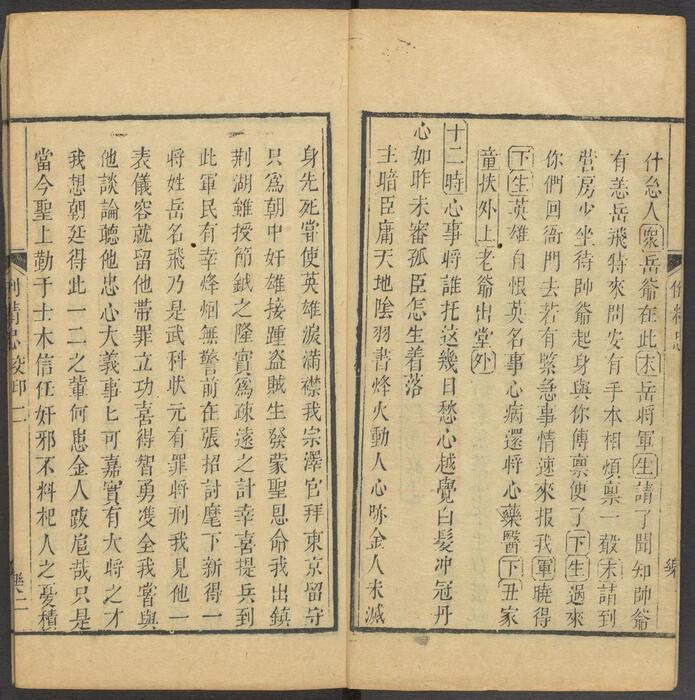 什急人衆岳爺在此末岳將軍生請了聞知帥爺
有恙岳飛特來問安有手本相煩稟一般末請到
营房少坐待帥爺起身與你傳稟便了下生過來
你們回衙門去若有緊急事情速來报我軍曉得
下生英雄自恨英名事心病還將心藥醫下丑家
童扶外上老爺出堂外
十二時心事將誰托这幾日愁心越覺白髮冲冠丹
心如昨未審孤臣怎生着落
主暗臣庸天地陰羽書烽火動人心時金人未滅
身先死嘗使英雄淚滿襟我宗澤官拜東京留守
只爲朝中奸雄接踵盗賊生發蒙聖恩命我出鎮
荆湖雖授節鉞之隆實爲疎遠之計幸喜提兵到
此軍民有幸烽烟無警前在張招討麾下新得一
將姓岳名飛乃是武科狀元有罪將刑我見他一
表儀容就留他帶罪立功喜得智勇雙全我嘗與
他談論聽他忠心大義事匕可嘉實有大將之才
我想朝廷得此一二之輩何患金人跋扈哉只是
當今聖上勤于土木信任奸邪不料杞人之憂積